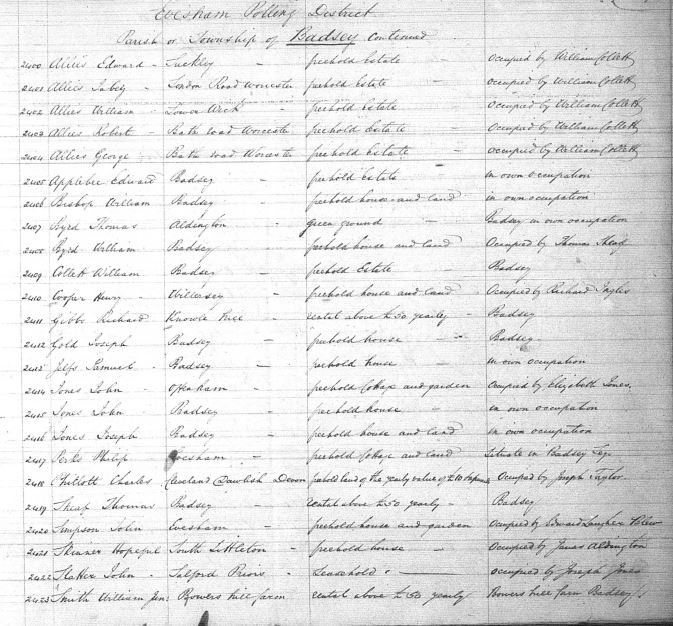 Evesham Polling District
Parish or Township of Badsey Continued
2400 Allies Edward - Suckley - freehold Estate - occupied by William Collett
2401 Allies Jabez - London Road Worcester freehold Estate - occupied by William Collett
2402 Allies William - Lower Wick freehold Estate occupied by William Collett
2403 Allies Robert - Bath road Worcester freehold Estate - occupied by William Collett
2404 Allies George - Bath road Worcester freehold Estate - occupied by William Collett
2405 Applebee Edward Badsey freehold Estate in own occupation
2406 Bishop William Badsey - freehold house and land in own occupation
2407 Byrd Thomas Aldington - green ground - Badsey in own occupation
2408 Byrd William Badsey - freehold house and land Occupied by Thomas Sheaf
2409 Collett William Badsey - freehold Estate - Badsey
2410 Cooper Henry - Willersey - freehold house and land Occupied by Richard
2411 Gibbs Richard Knowle Hill rental above £50 yearly - Badsey
2412 Gold Joseph Badsey - freehold house - Badsey
2413 Jelfs Samuel - Badsey - freehold house - in own occupation
2414 Jones John - Offenham - freehold Cottage and garden Occupied by Elizabeth Jones
2415 Jones John Badsey - freehold house - in own occupation
2416 Jones Joseph Badsey - freehold house and land in own occupation
2417 Perks Philip Evesham - freehold Cottage and land Situate in Badsey
2418 Phillott Charles Dawlish Devon freehold land of the yearly value of £10 Occupied by Joseph Taylor
2419 Sheaf Thomas Badsey - rental above £50 yearly - Badsey
2420 Simpson John Evesham - freehold house and garden Occupied by Edward
2421 Skinner Hopeful South Littleton - freehold house - Occupied by James Aldington
2422 Slatter John - Salford Priors - Leasehold - occupied by Joseph Jones
2423 Smith William Jun: Bowers hill farm - rental above £50 yearly Bowers hill farm Badsey